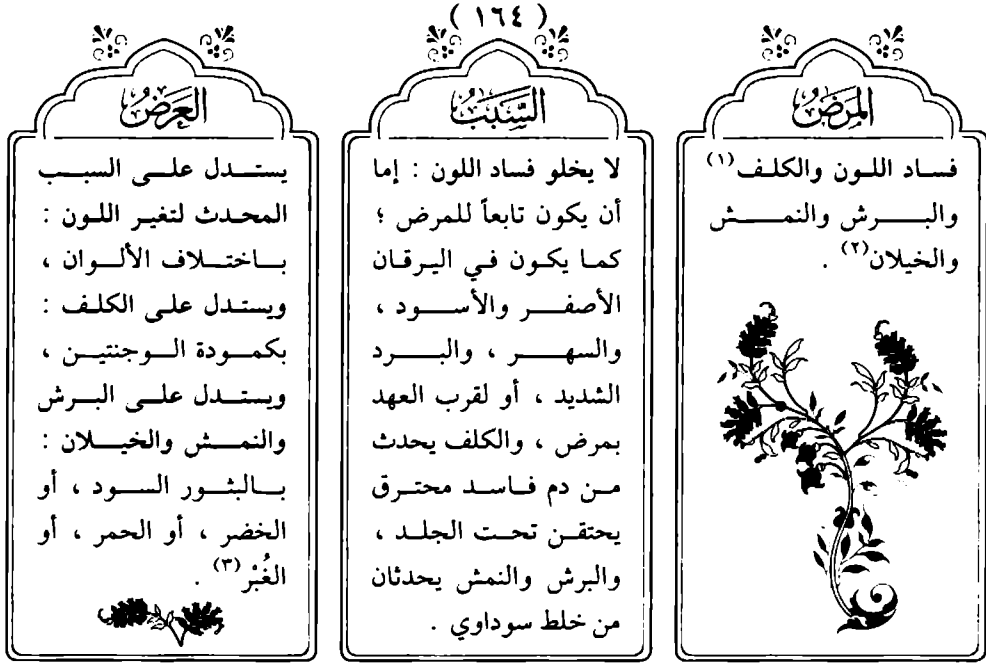 ( ١٦٤ )
المَرَضُ
فساد اللون والكلف(١)
والبرش والنمش
والخيلان(٢) .
السَّبَبُ
لا يخلو فساد اللون : إما
أن يكون تابعاً للمرض ؛
كما يكون في اليرقان
الأصفر والأسود ،
والسهر ، والبرد
الشديد ، أو لقرب العهد
بمرض ، والكلف يحدث
من دم فاسد محترق
يحتقن تحت الجلد ،
والبرش والنمش يحدثان
من خلط سوداوي .
العَرَضُ
يستدل على السبب
المحدث لتغير اللون :
باختلاف الألوان ،
ويستدل على الكلف :
بكمودة الوجنتين ،
ويستدل على البرش
والنمش والخيلان :
بالبثور السود ، أو
الخضر ، أو الحمر ، أو
الغُبْر(٣) .